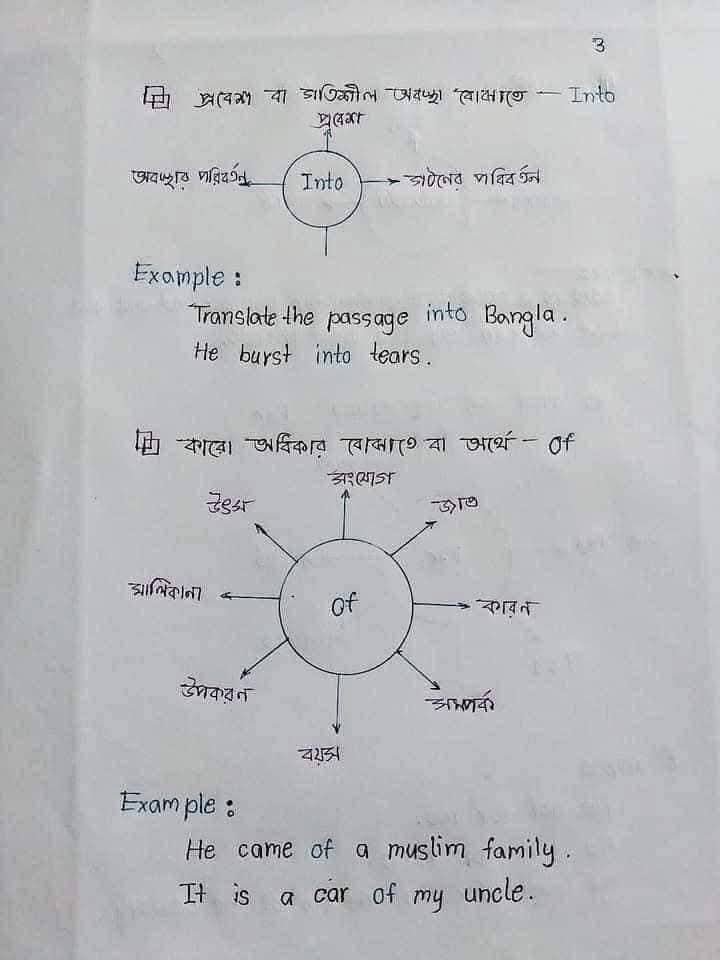 3
প্রবেশ বা গতিশীল অবস্থা বোঝাতে – Into
প্রবেশ
অবস্থার পরিবর্তন
Into
গঠনের পরিবর্তন
Example :
Translate the passage into Bangla.
He burst into tears.
কারো অধিকার বোঝাতে বা অর্থে – Of
সংযোগ
উৎস
জাত
মালিকানা
Of
কারন
উপকরন
সম্পর্ক
বয়স
Example :
He came of a muslim family.
It is a car of my uncle.